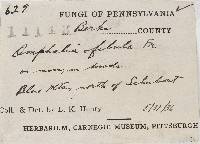 629
FUNGI OF PENNSYLVANIA
Berks COUNTY
Omphalia fibula Fr.
on mossy
Blue Mtn. north of
Coll. & Det. by L. K. Henry
HERBARIUM, CARNEGIE MUSEUM, PITTSBURGH